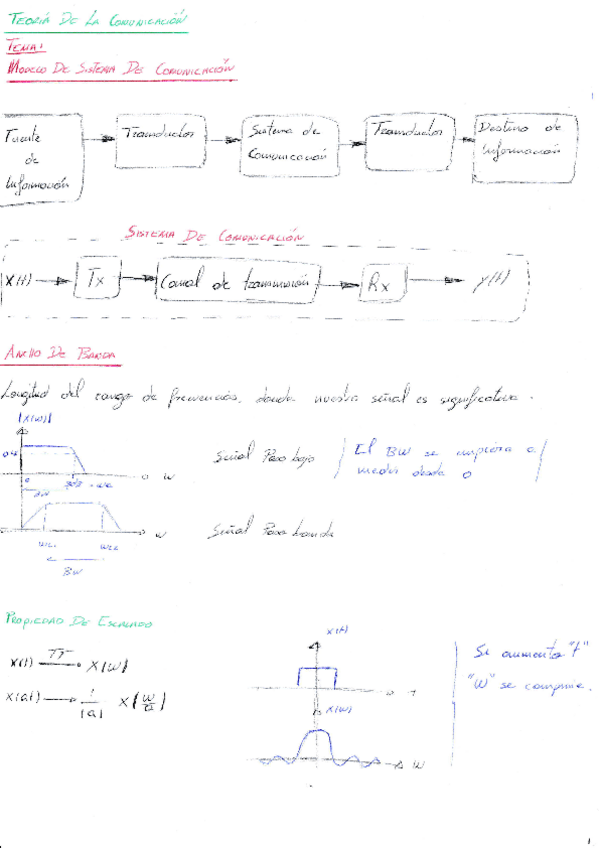 TEORÍA DE LA COMUNICACIÓN
TEMA 1
MODELO DE SISTEMA DE COMUNICACIÓN
Fuente de Información
Transductor
Sistema de Comunicación
Transductor
Destino de Información
SISTEMA DE COMUNICACIÓN
X(t)
Tx
Canal de transmisión
Rx
y(t)
ANCHO DE BANDA
Longitud del rango de frecuencias, donde nuestra señal es significativa.
|X(w)|
0
W
BW
Señal Paso bajo
El BW se empieza a medir desde 0
W
BW
Señal Paso banda
PROPIEDAD DE ESCALADO
X(t) X(W)
X(at) 1/|a| X(W/a)
X(t)
t
X(W)
W
Si aumenta "t"
"W" se comprime.
1